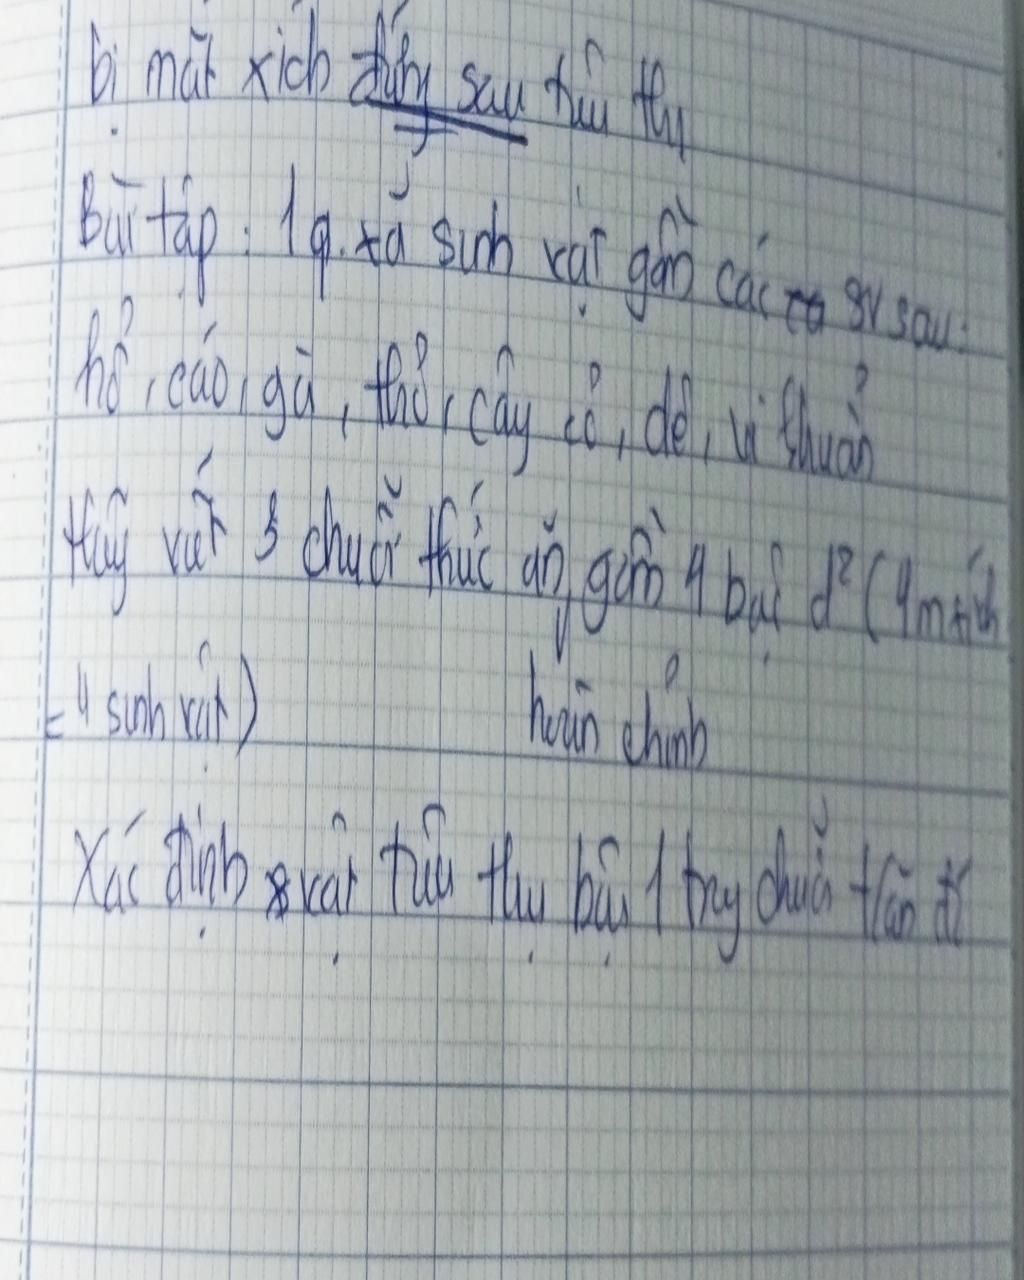 bị mắt xích đứng sau tiêu thụ
Bài tập : 1 q. xã sinh vật gồm các SV sau:
hổ, cáo, gà, thỏ, cây cỏ, dê, vi khuẩn
Hãy viết 3 chuỗi thức ăn gồm 4 bậc d² (4 m xích
= 4 sinh vật) hoàn chỉnh
Xác định vật tiêu thụ bậc 1 trong chuỗi trên